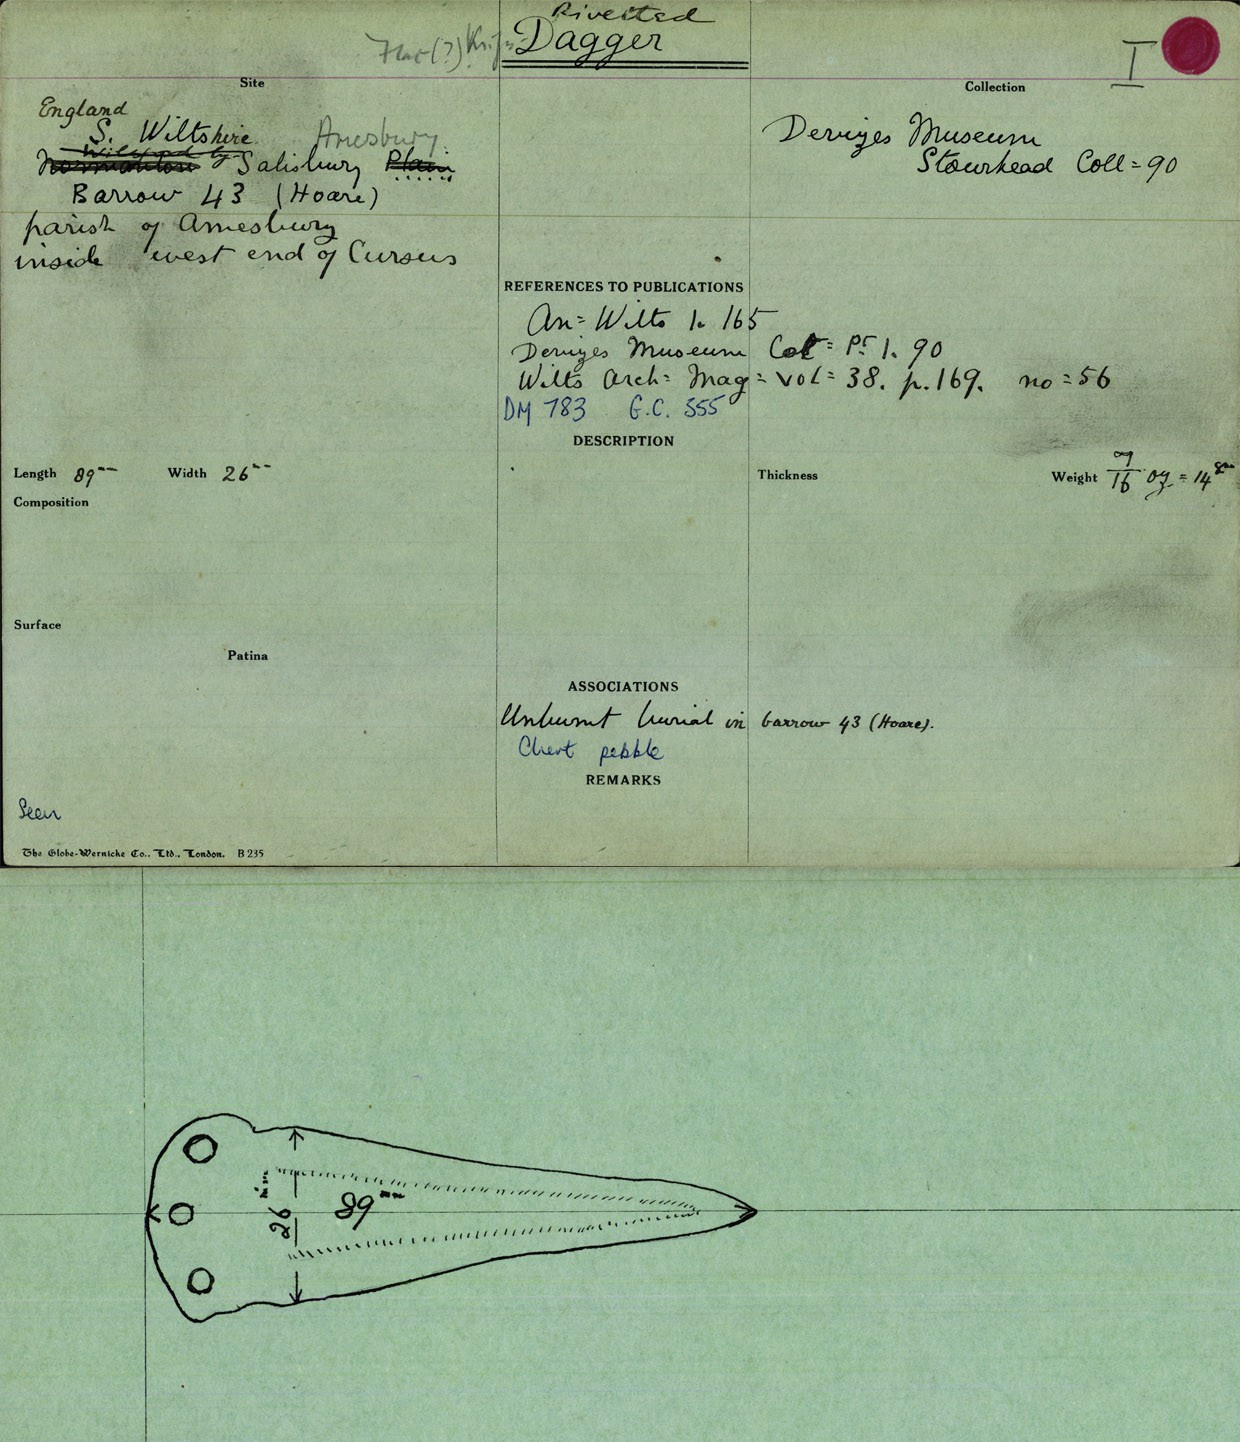 Rivetted
Flat(?) Knife Dagger
I
Site
Collection
England
S. Wiltshire Amesbury
Wilsford by
Normanton Salisbury Plain
Barrow 43 (Hoare)
parish of Amesbury
inside west end of Cursus
Devizes Museum
Stourhead Coll= 90
REFERENCES TO PUBLICATIONS
An= Wilts 1. 165
Devizes Museum Cat= Pt 1. 90
Wilts Arch= Mag= vol= 38. p. 169. no= 56
DM 783 G.C. 355
DESCRIPTION
Length 89mm Width 26mm Thickness Weight 9/16 oz = 14 gm
Composition
Surface
Patina
ASSOCIATIONS
Unburnt burial in barrow 43 (Hoare).
Chert pebble
REMARKS
Seen
The Globe-Wernicke Co., Ltd., London. B 235
26mm
89mm